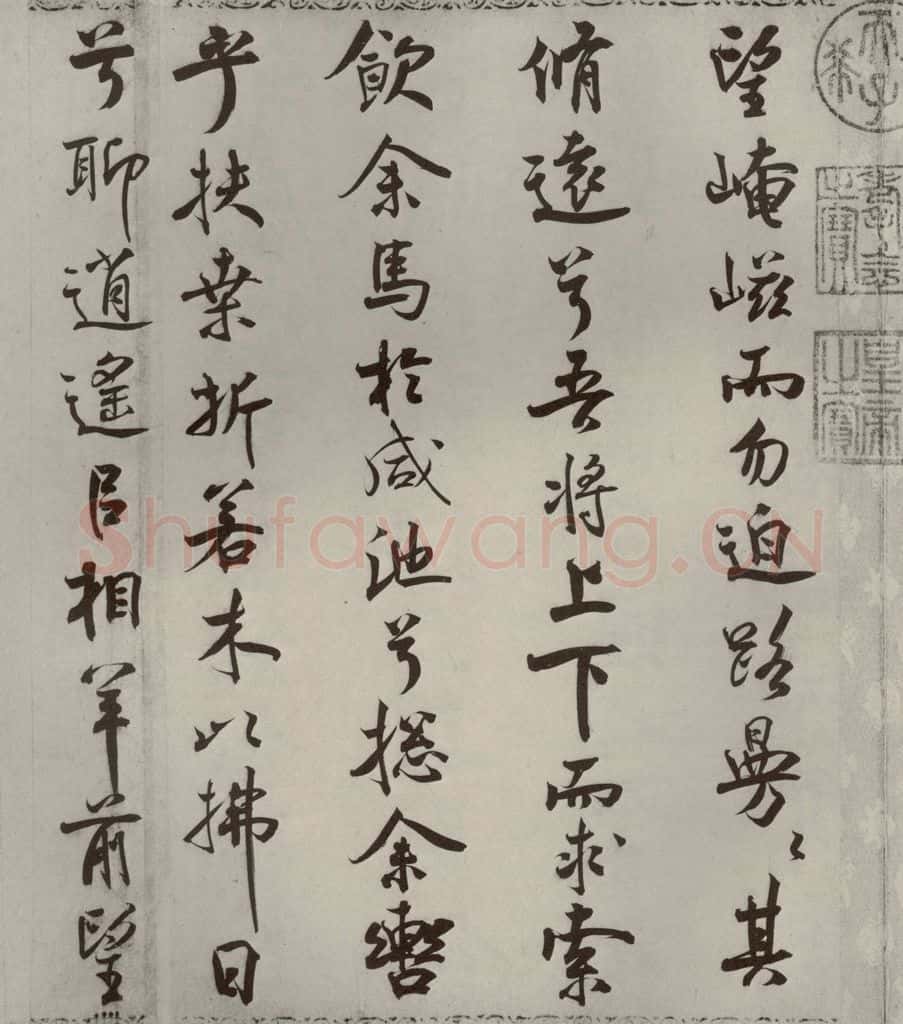 望崦嵫而勿迫路曼〻其
脩遠兮吾將上下而求索
飲余馬於咸池兮揔余轡
乎扶桒折若木以拂日
兮聊逍遙㠯相羊前望
皇帝之寶
Shufawang.CN